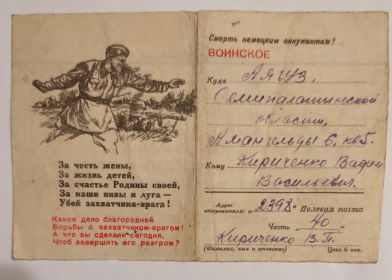 За честь жены,
За жизнь детей,
За счастье Родины своей,
За наши нивы и луга —
Убей захватчика-врага!
Какое дело благородней
Борьбы с захватчиком-врагом!
А что вы сделали сегодня,
Чтоб завершить его разгром?
Смерть немецким оккупантам!
ВОИНСКОЕ
Куда Аягуз,
Семипалатинской
области,
Амангельды 6, кв 6.
Кому Кириченко Вадим
Васильевич.
Адрес
отправителя: „2398“ Полевая почта
Часть 40
Кириченко В.П.
(Фамилия, имя и отчество) Цена 6 коп.